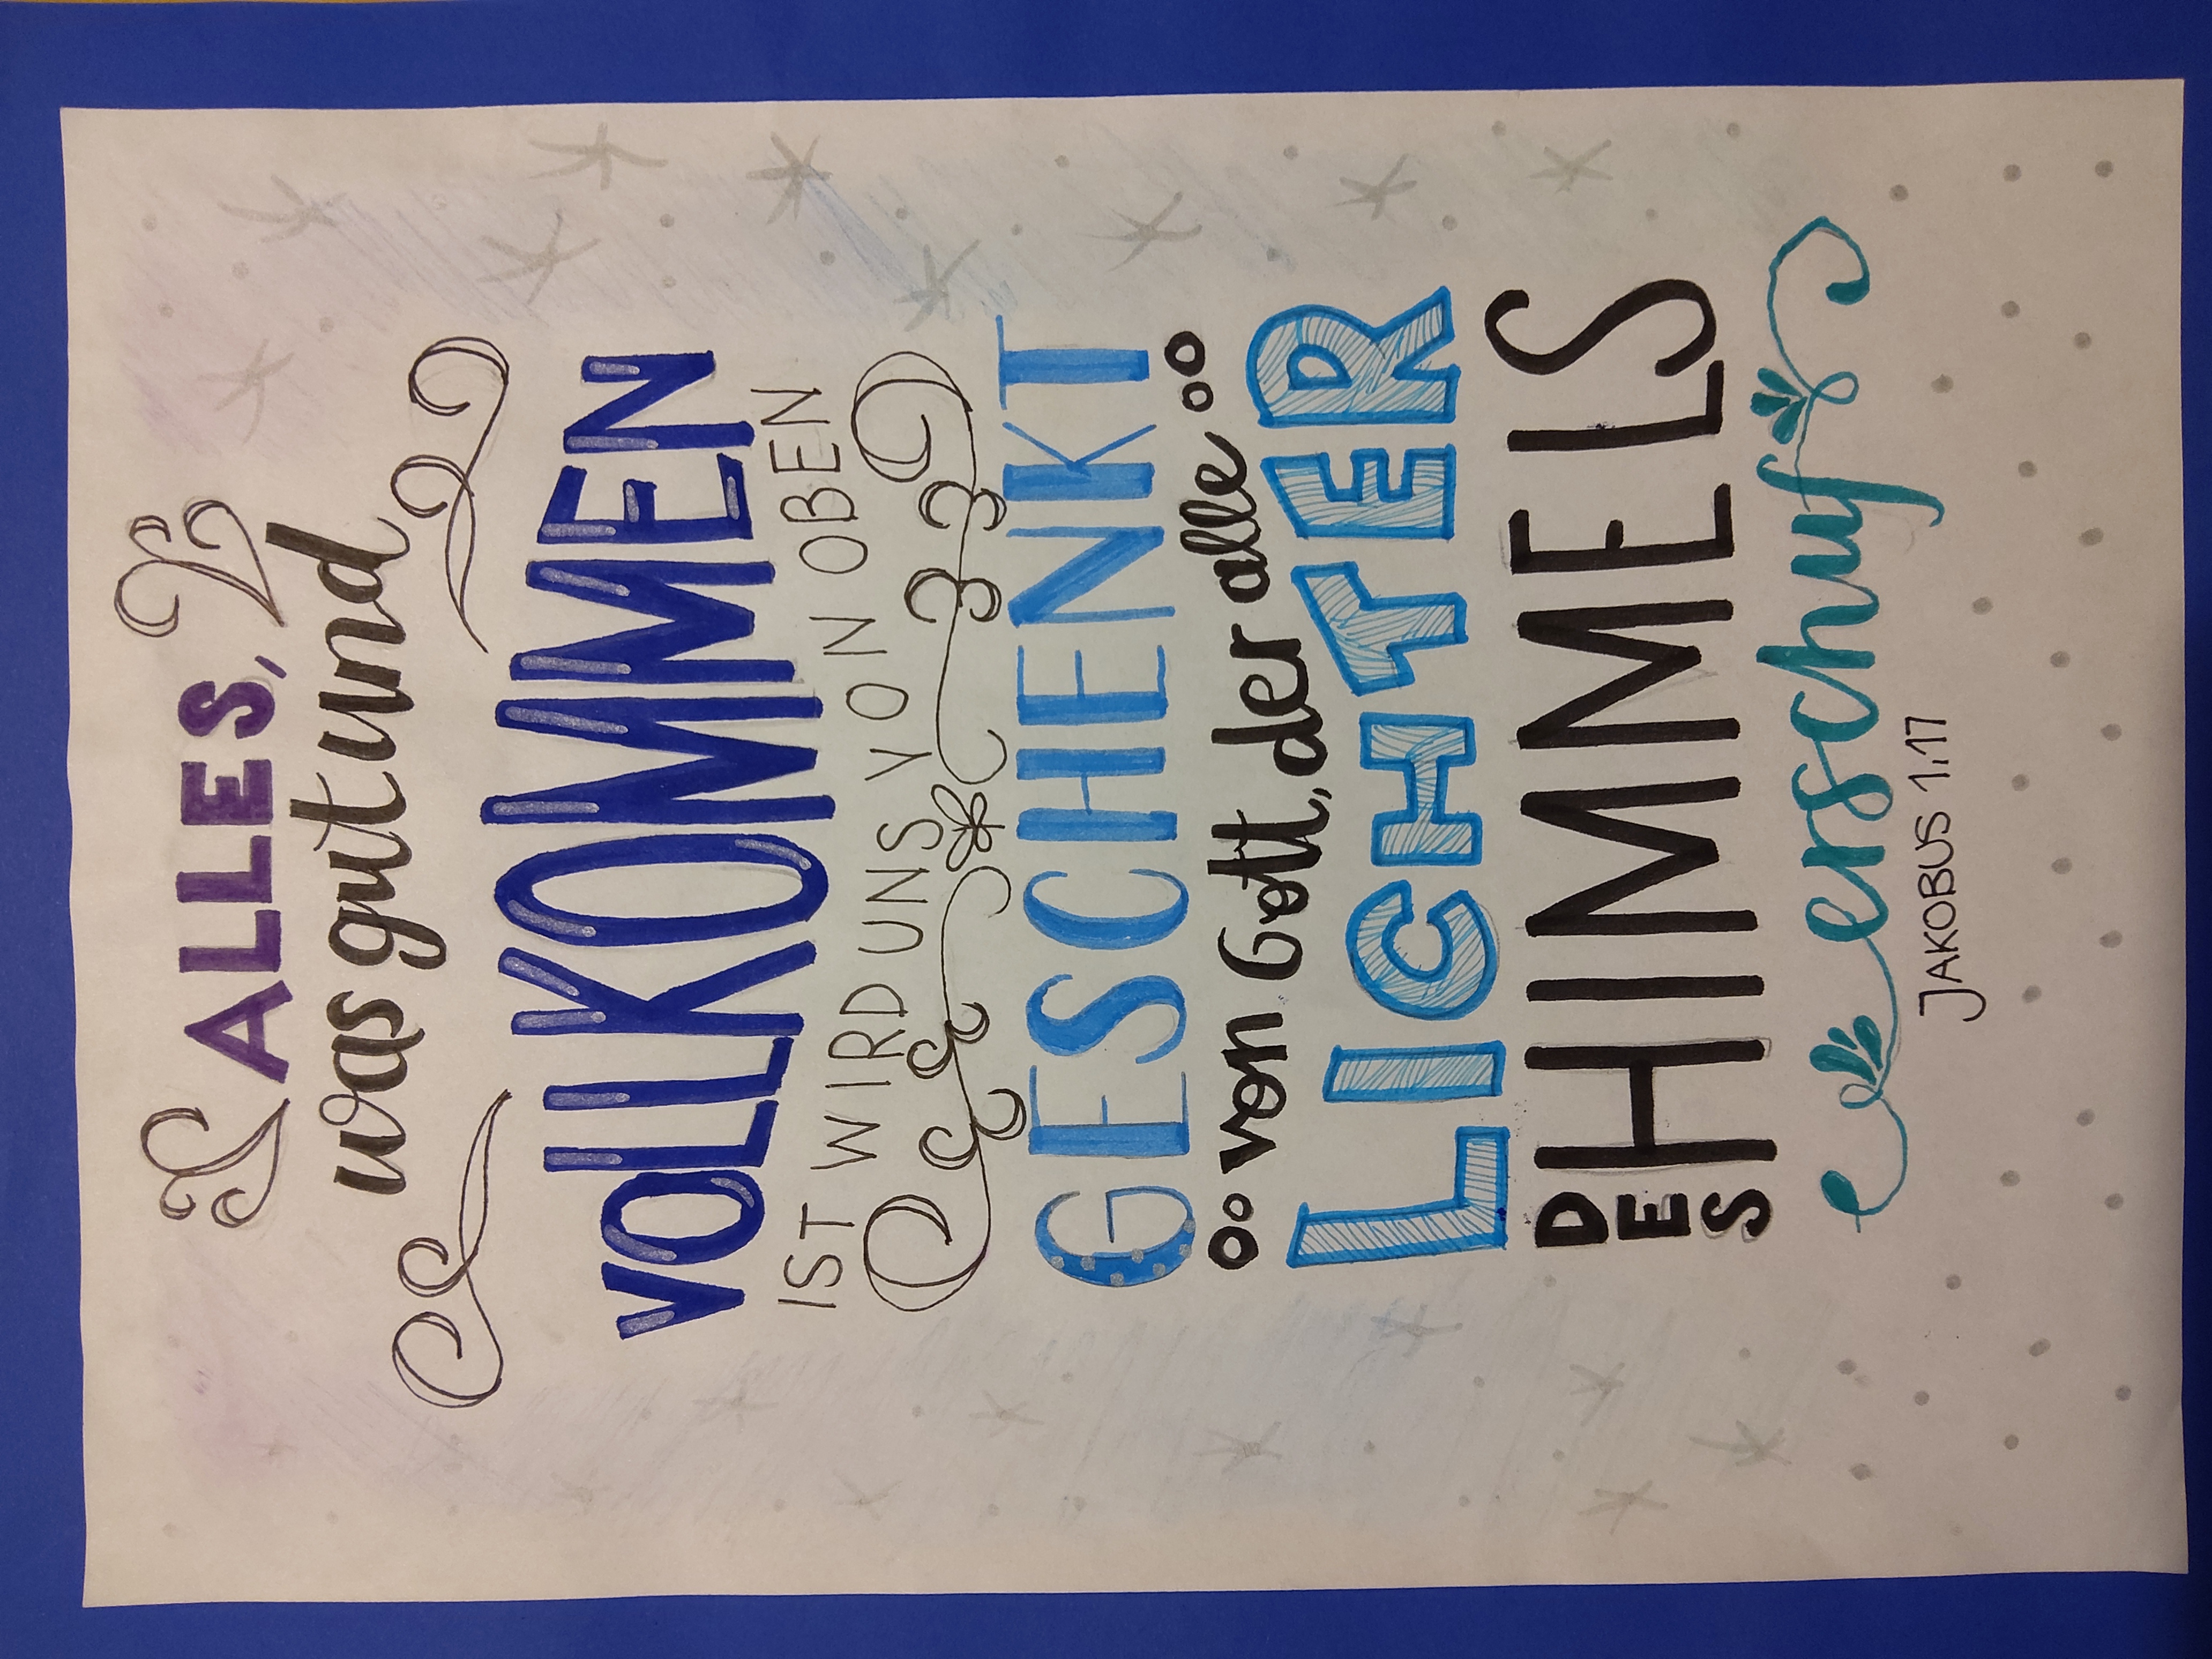 ALLES,
was gut und
VOLLKOMMEN
IST WIRD UNS VON OBEN
GESCHENKT
von Gott, der alle
LICHTER
DES HIMMELS
erschuf
JAKOBUS 1,17